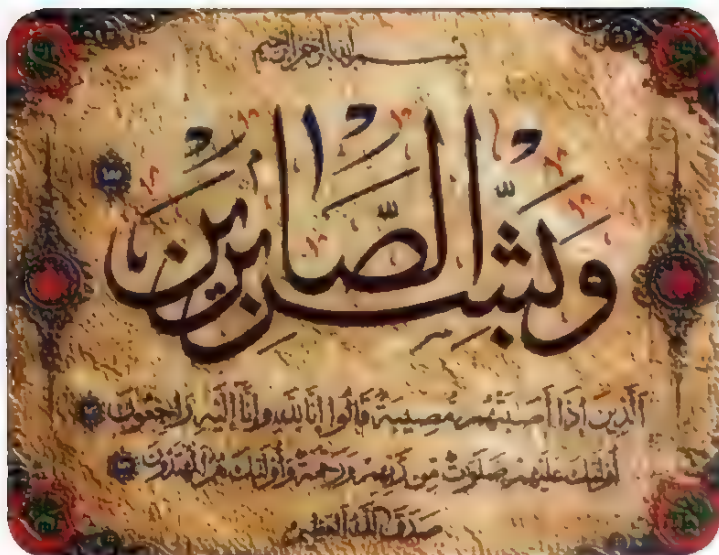 بسم الله الرحمن الرحيم
وَبَشِّرِ الصَّابِرِينَ
الَّذِينَ إِذَا أَصَابَتْهُم مُّصِيبَةٌ قَالُوا إِنَّا لِلَّهِ وَإِنَّا إِلَيْهِ رَاجِعُونَ
أُولَئِكَ عَلَيْهِمْ صَلَوَاتٌ مِّن رَّبِّهِمْ وَرَحْمَةٌ وَأُولَئِكَ هُمُ الْمُهْتَدُونَ
صدق الله العظيم